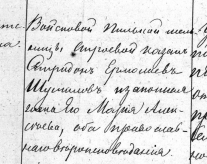 Войсковой Пильной мель
ницы Строевой казакъ
Спиридонъ Ермолаевъ
Шумиловъ и законная
жена его Марія Алек
сѣева, оба православ
наго вѣроисповѣданія.